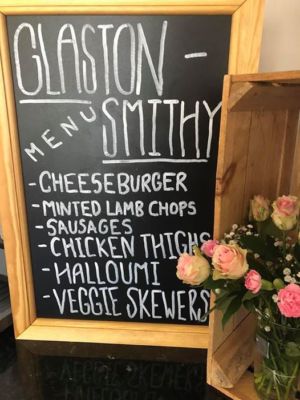 GLASTON-
SMITHY
MENU
-CHEESEBURGER
-MINTED LAMB CHOPS
-SAUSAGES
-CHICKEN THIGHS
-HALLOUMI
-VEGGIE SKEWERS